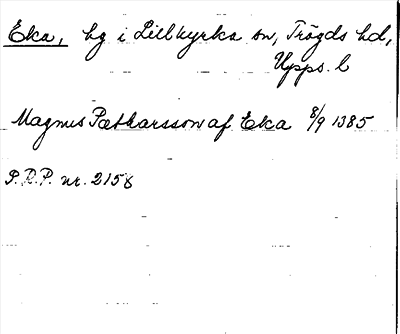 Eka, hg i Lillkyrka sn, Trögds hd,
Upps. l
Magnus Pætharsson af Eka 8/9 1385
P.R.P. nr. 2158